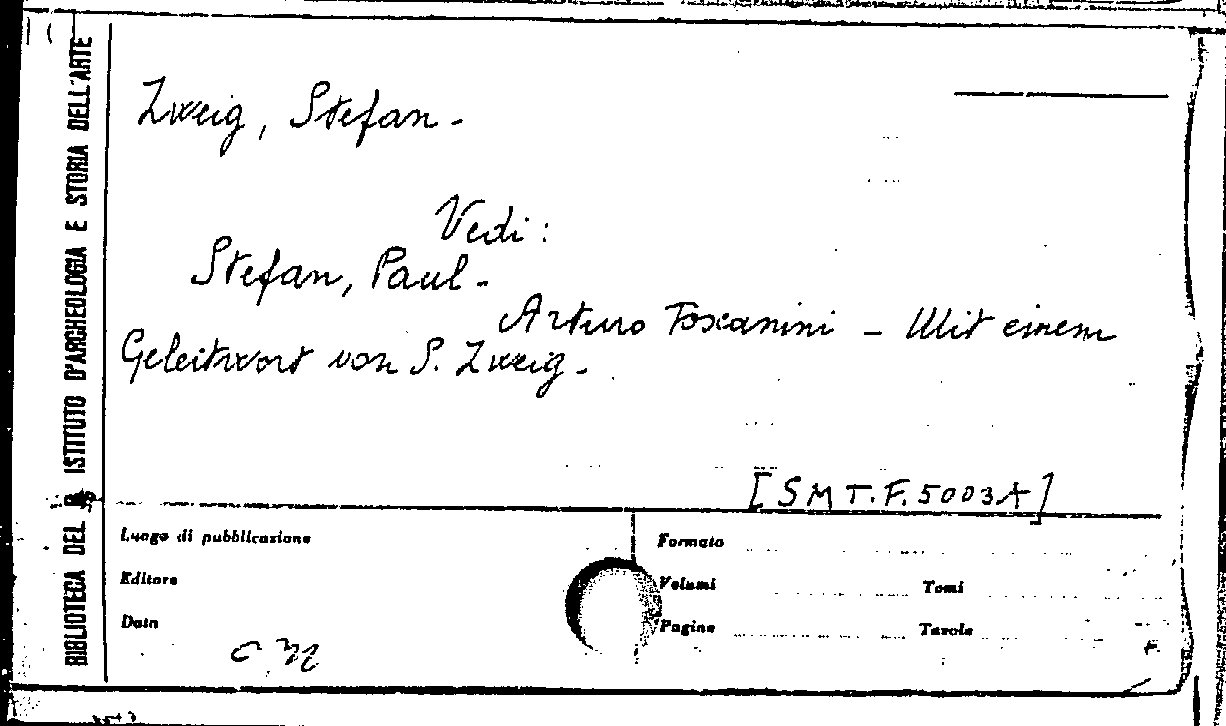 BIBLIOTECA DEL R. ISTITUTO D'ARCHEOLOGIA E STORIA DELL'ARTE
Zweig, Stefan -
Vedi:
Stefan, Paul -
Arturo Toscanini - Mit einem
Geleitwort von S. Zweig -
[SMT.F.5003A]
Luogo di pubblicazione
Formato
Editore
Volumi Tomi
Data
Pagine Tavole